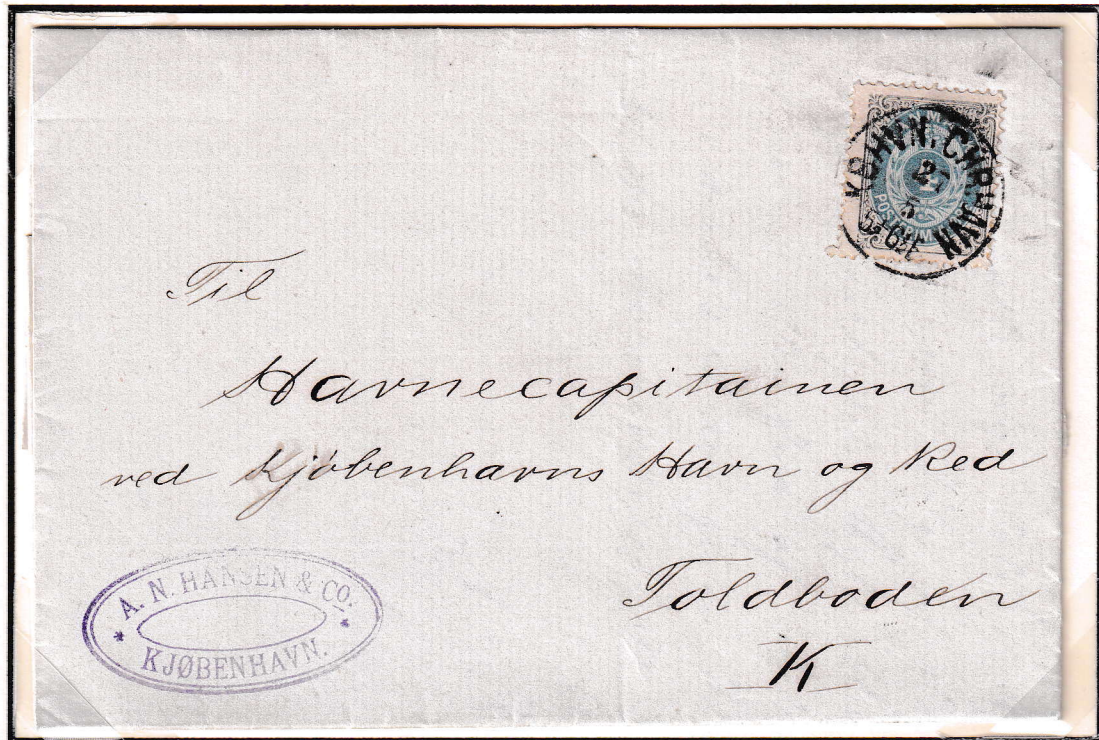 KBHVN. CHR HAVN
27
5
4
Til
Havnecapitainen
ved Kjöbenhavns Havn og Red
Toldboden
K
A. N. HANSEN & Co.
KJØBENHAVN.